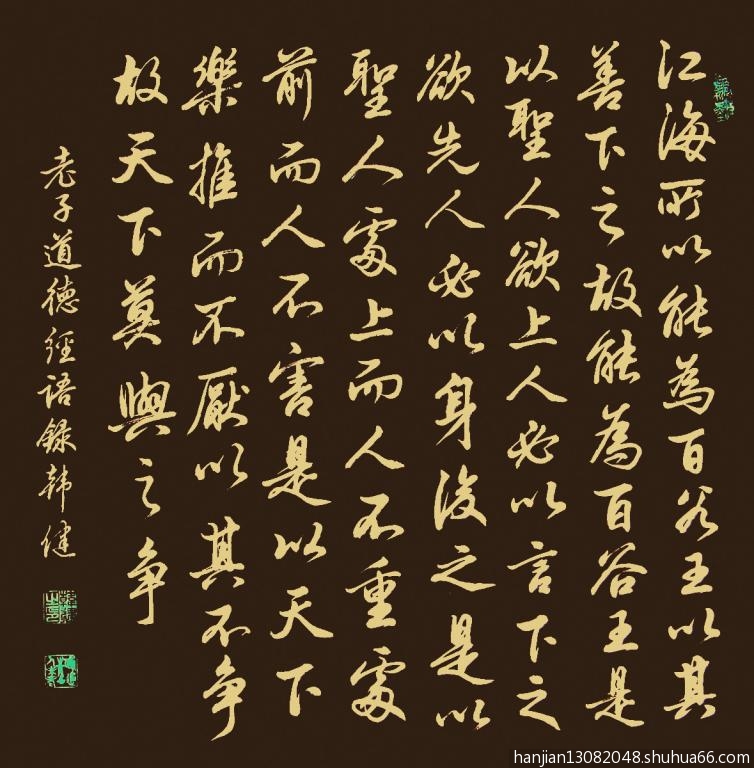 江海所以能為百谷王以其
善下之故能為百谷王是
以聖人欲上人必以言下之
欲先人必以身後之是以
聖人處上而人不重處
前而人不害是以天下
樂推而不厭以其不争
故天下莫與之争
老子道德經語錄韩健
hanjian13082048.shuhua66.com